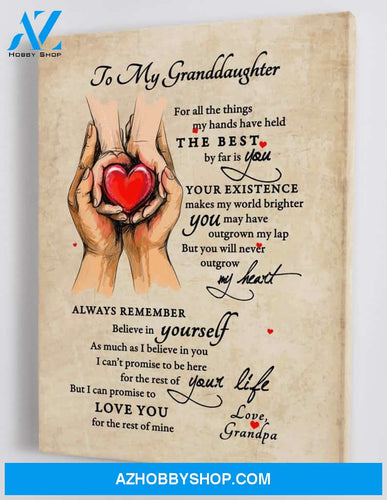 AZ
HOBBY SHOP
To My Granddaughter
For all the things
my hands have held
THE BEST
by far is you
YOUR EXISTENCE
makes my world brighter
you may have
outgrown my lap
But you will never
outgrow
my heart
ALWAYS REMEMBER
Believe in yourself
As much as I believe in you
I can't promise to be here
for the rest of your life
But I can promise to
LOVE YOU
for the rest of mine
Love,
Grandpa
AZHOBBYSHOP.COM